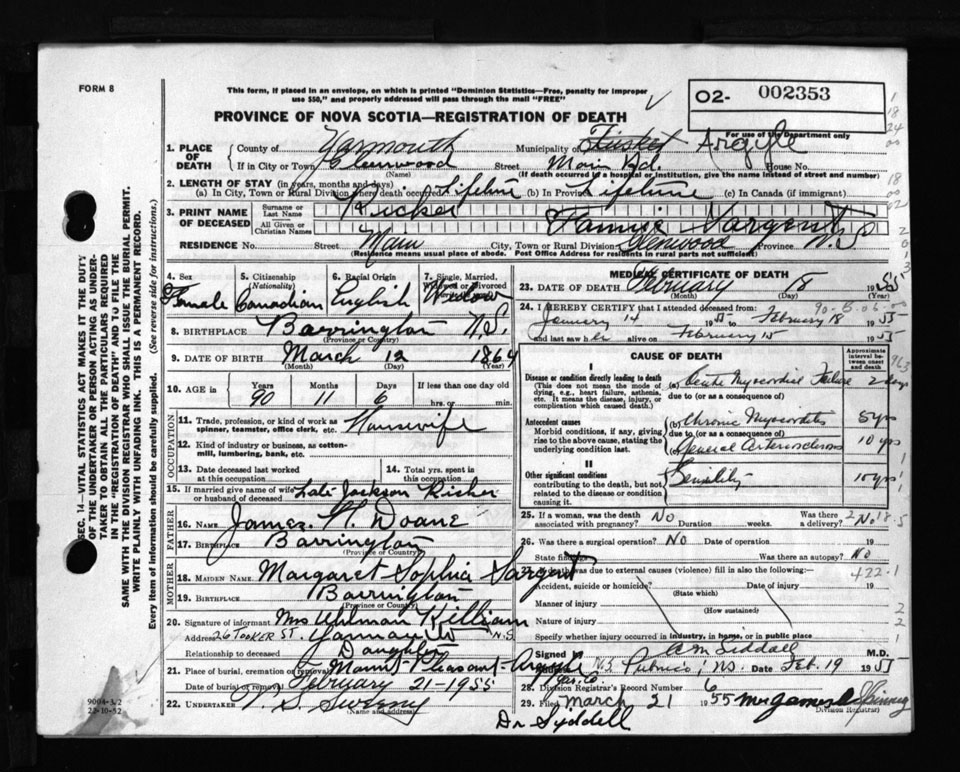 FORM 8
This form, if placed in an envelope, on which is printed "Dominion Statistics—Free, penalty for improper
use $50," and properly addressed will pass through the mail "FREE"
02- 002353
PROVINCE OF NOVA SCOTIA—REGISTRATION OF DEATH
For use of the Department only
1. PLACE OF DEATH County of Yarmouth Municipality of Tusket Argyle
If in City or Town Glenwood Street Main Rd. House No.
(Name) (If death occurred in a hospital or institution, give the name instead of street and number)
2. LENGTH OF STAY (in years, months and days)
(a) In City, Town or Rural Division where death occurred Lifetime (b) In Province Lifetime (c) In Canada (if immigrant)
3. PRINT NAME OF DECEASED Surname or Last Name Ricker
All Given or Christian Names Fannie Sargent
RESIDENCE No. Street Main City, Town or Rural Division Glenwood Province N.S
(Residence means usual place of abode. Post Office Address for residents in rural parts not sufficient)
4. Sex 5. Citizenship (Nationality) 6. Racial Origin 7. Single, Married, Widowed or Divorced
Female Canadian English Widow
8. BIRTHPLACE Barrington N.S.
(Province or Country)
9. DATE OF BIRTH March 12 1864
(Month) (Day) (Year)
10. AGE in Years Months Days If less than one day old
90 11 6 hrs. or min.
OCCUPATION
11. Trade, profession, or kind of work as spinner, teamster, office clerk, etc. Housewife
12. Kind of industry or business, as cotton-mill, lumbering, bank, etc.
13. Date deceased last worked at this occupation 14. Total yrs. spent in this occupation
15. If married give name of wife or husband of deceased Late Jackson Ricker
FATHER
16. NAME James N. Doane
17. Birthplace Barrington
(Province or Country)
MOTHER
18. MAIDEN NAME Margaret Sophia Sargent
19. BIRTHPLACE Barrington
(Province or Country)
20. Signature of informant Mrs Uhlman Killiam
Address 26 TOOKER ST. Yarmouth N.S
Relationship to deceased Daughter
21. Place of burial, cremation or removal Mount Pleasant - Argyle
Date of burial or removal February 21-1955
22. UNDERTAKER V. S. Sweeny
(Name and address)
MEDICAL CERTIFICATE OF DEATH
23. DATE OF DEATH February 18 1955
(Month) (Day) (Year)
24. I HEREBY CERTIFY that I attended deceased from:
January 14 1955 to February 18 1955
and last saw her alive on February 15 1955
CAUSE OF DEATH
Approximate interval between onset and death
I
Disease or condition directly leading to death (a) Acute Myocardial Failure 2 days
(This does not mean the mode of dying, e.g., heart failure, asthenia, etc. It means the disease, injury, or complication which caused death.)
due to (or as a consequence of)
Antecedent causes (b) Chronic Myocarditis 5 yrs
Morbid conditions, if any, giving rise to the above cause, stating the underlying condition last.
due to (or as a consequence of)
(c) General Arteriosclerosis 10 yrs
II
Other significant conditions Senility 10 yrs
contributing to the death, but not related to the disease or condition causing it.
25. If a woman, was the death associated with pregnancy? No Duration weeks. Was there a delivery? No
26. Was there a surgical operation? No Date of operation 19
State findings Was there an autopsy? No
27. If death was due to external causes (violence) fill in also the following:—
Accident, suicide or homicide? Date of injury 19
(State which)
Manner of injury
(How sustained)
Nature of injury
Specify whether injury occurred in industry, in home, or in public place
Signed by A M Siddall M.D.
Pubnico, NS. Date Feb. 19 1955
28. Division Registrar's Record Number 6
29. Filed March 21 1955 Mrs James Spinney
(Division Registrar)
Dr Syddell
422-1
SEC. 14—VITAL STATISTICS ACT MAKES IT THE DUTY
OF THE UNDERTAKER OR PERSON ACTING AS UNDER-
TAKER TO OBTAIN ALL THE PARTICULARS REQUIRED
IN THE "REGISTRATION OF DEATH" AND TO FILE THE
SAME WITH THE DIVISION REGISTRAR WHO SHALL ISSUE THE BURIAL PERMIT.
WRITE PLAINLY WITH UNFADING INK. THIS IS A PERMANENT RECORD.
Every item of information should be carefully supplied. (See reverse side for instructions.)
9004-3/2
22-10-52